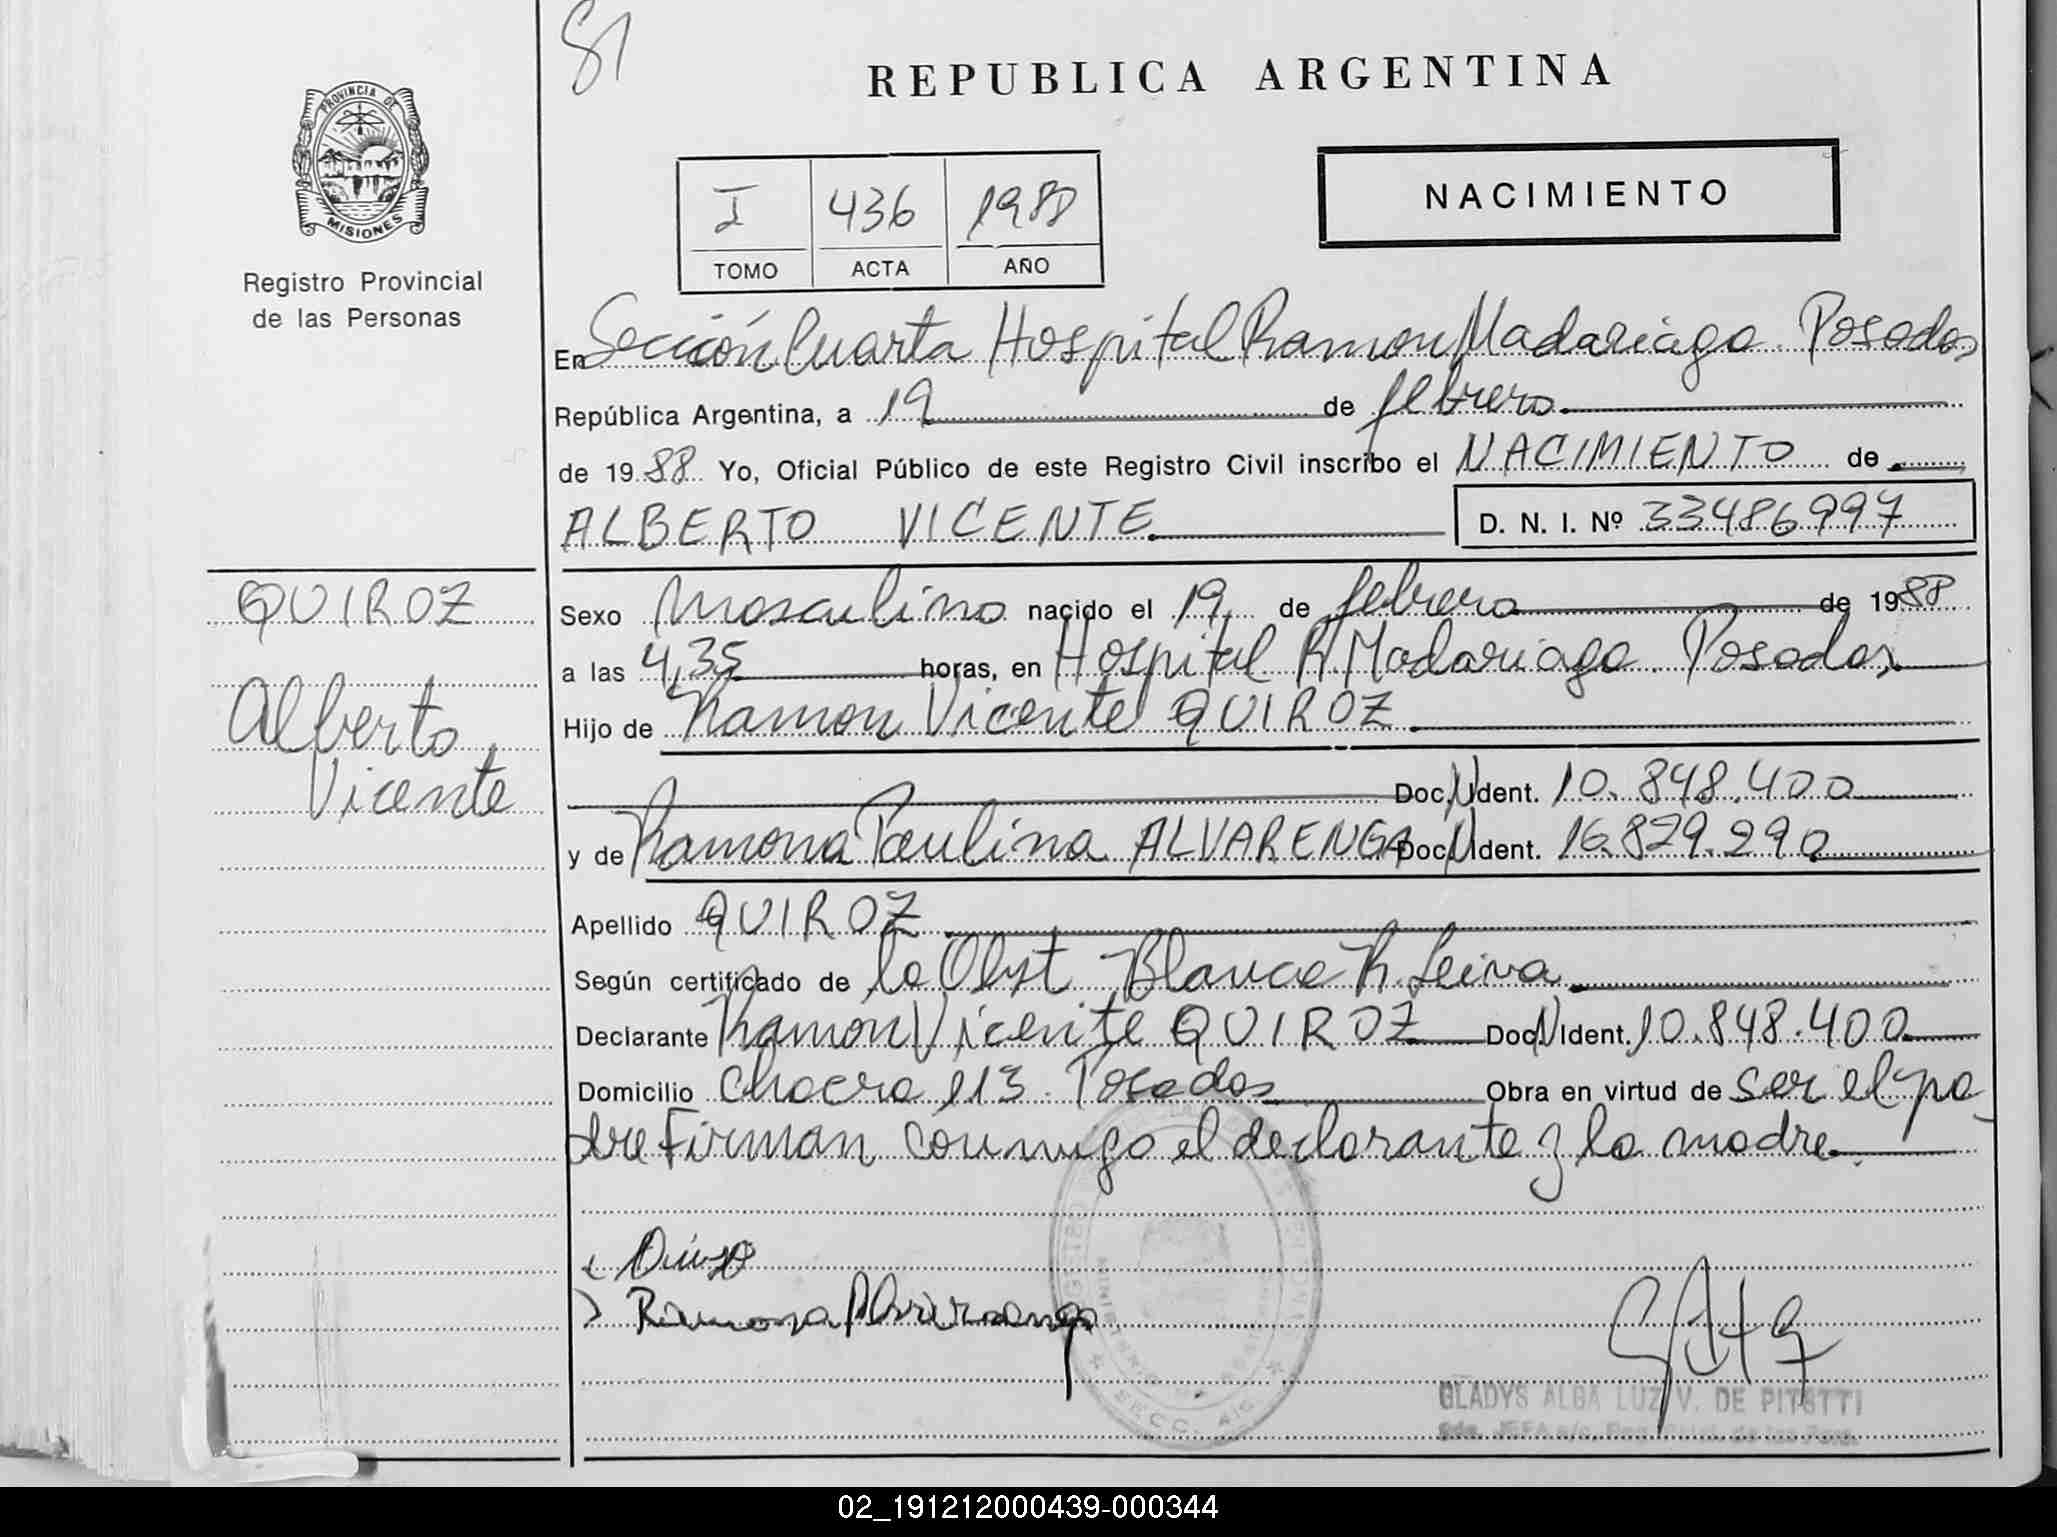 81
REPUBLICA ARGENTINA
PROVINCIA DE
MISIONES
Registro Provincial
de las Personas
I 436 1988
TOMO ACTA AÑO
NACIMIENTO
En Sección Cuarta Hospital Ramon Madariaga. Posadas
República Argentina, a 19 de febrero
de 1988 Yo, Oficial Público de este Registro Civil inscribo el NACIMIENTO de
ALBERTO VICENTE
D. N. I. Nº 33486997
QUIROZ
Alberto
Vicente
Sexo Masculino nacido el 19 de febrero de 1988
a las 4,35 horas, en Hospital R. Madariaga. Posadas
Hijo de Ramon Vicente QUIROZ
Doc. Ident. 10.848.400
y de Ramona Paulina ALVARENGA Doc. Ident. 16.829.290
Apellido QUIROZ
Según certificado de la Obst Blanca R. Leiva
Declarante Ramon Vicente QUIROZ Doc. Ident. 10.848.400
Domicilio Chacra 113. Posadas Obra en virtud de ser el pa-
dre Firman conmigo el declarante y la madre.
Ramona Alvarenga
GLADYS ALBA LUZ V. DE PITOTTI
02_191212000439-000344